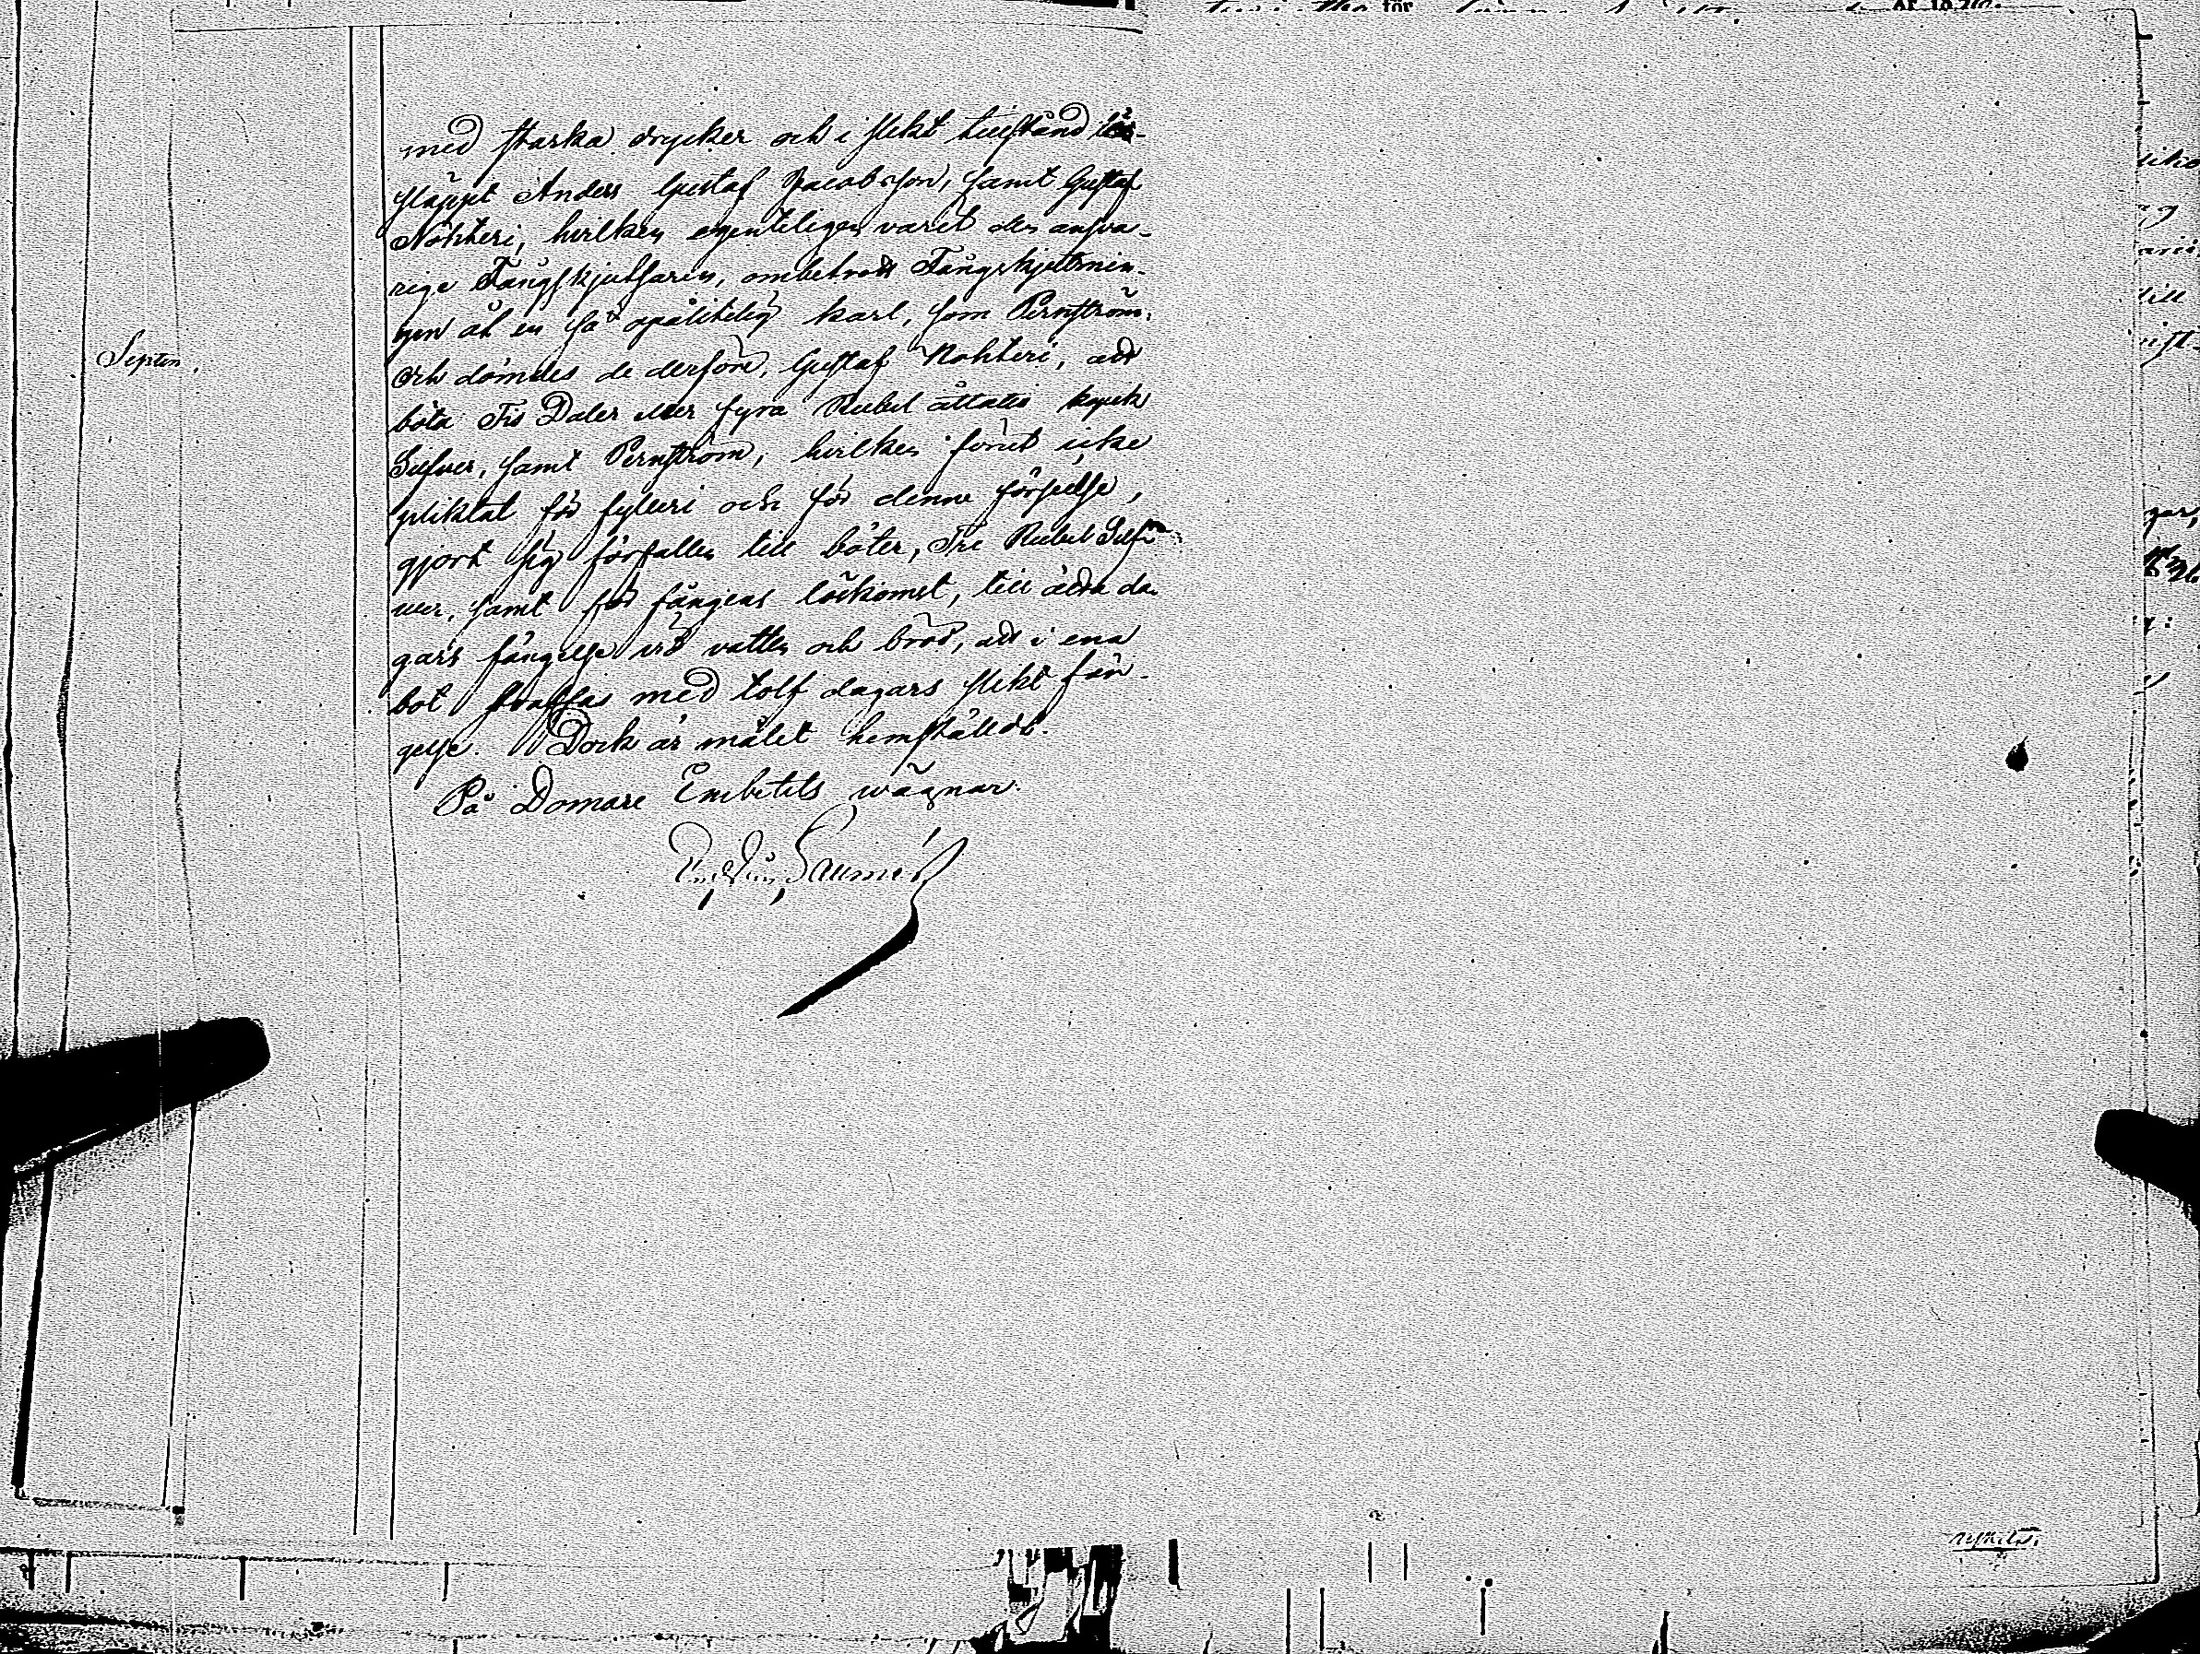 med starka drycker och i slikt tillstånd lös-
släppt Anders Gustaf Jacobsson, samt Gustaf
Nohteri, hvilken egenteligen varit den ansva-
rige Fångskjutsaren, ombetrodt Fångskjutsnin-
gen åt en så opålitelig karl, som Pernström,
och dömdes de derföre, Gustaf Nohteri, att
böta Tio Daler eller fyra Rubel åttatio kopek
Silfver, samt Pernström, hvilken förut icke
pliktat för fylleri och för denne förseelse,
gjort sig förfallen till böter, Tre Rubel Silf-
wer, samt för fångens löskomst, till åtta da-
gars fängelse vid vatten och bröd, att i ena
bot straffas med tolf dagars slikt fän-
gelse. Dock är målet hemstäldt.
På Domare Embetets wägnar.
Septem